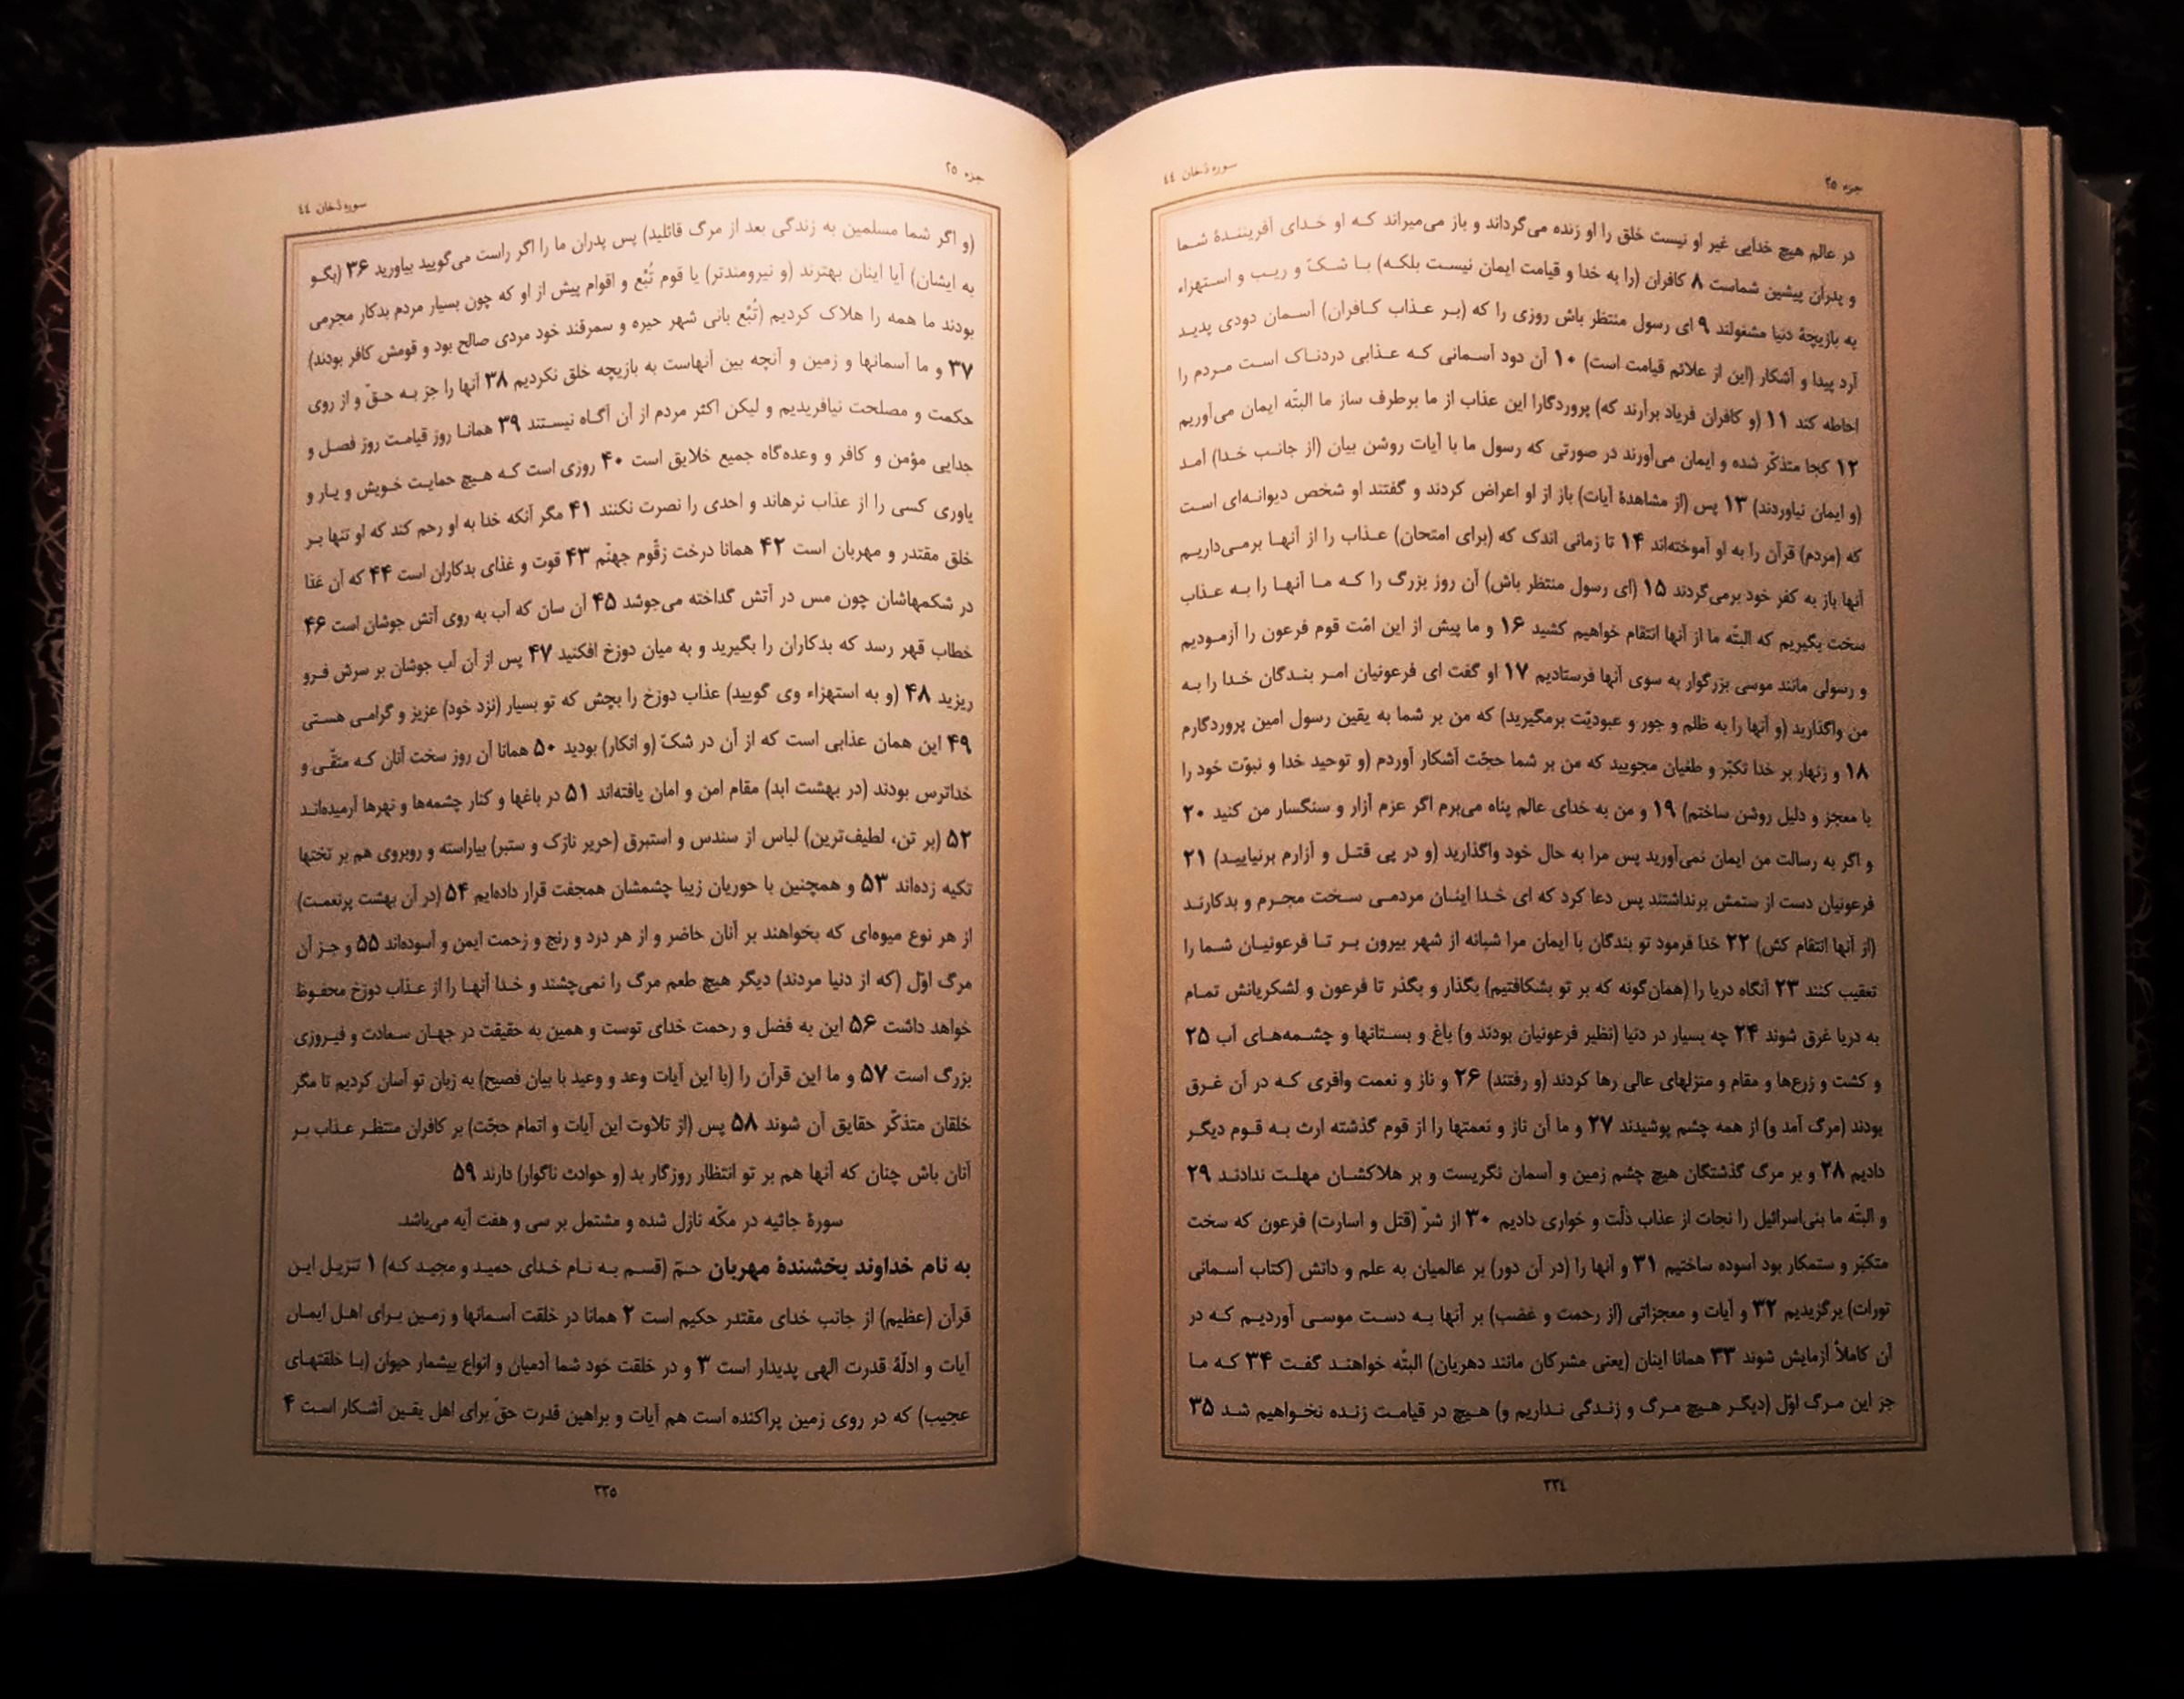 جزء ۲۵
سوره دخان ٤٤
در عالم هیچ خدایی غیر او نیست خلق را او زنده می‌گرداند و باز می‌میراند که او خدای آفرینندهٔ شما
و پدران پیشین شماست ۸ کافران (را به خدا و قیامت ایمان نیست بلکه) با شکّ و ریب و استهزاء
به بازیچهٔ دنیا مشغولند ۹ ای رسول منتظر باش روزی را که (بر عذاب کافران) آسمان دودی پدید
آرد پیدا و آشکار (این از علائم قیامت است) ۱۰ آن دود آسمانی که عذابی دردناک است مردم را
احاطه کند ۱۱ (و کافران فریاد برآرند که) پروردگارا این عذاب از ما برطرف ساز ما البتّه ایمان می‌آوریم
۱۲ کجا متذکّر شده و ایمان می‌آورند در صورتی که رسول ما با آیات روشن بیان (از جانب خدا) آمد
(و ایمان نیاوردند) ۱۳ پس (از مشاهدهٔ آیات) باز از او اعراض کردند و گفتند او شخص دیوانه‌ای است
که (مردم) قرآن را به او آموخته‌اند ۱۴ تا زمانی اندک که (برای امتحان) عذاب را از آنها برمی‌داریم
آنها باز به کفر خود برمی‌گردند ۱۵ (ای رسول منتظر باش) آن روز بزرگ را که ما آنها را به عذاب
سخت بگیریم که البتّه ما از آنها انتقام خواهیم کشید ۱۶ و ما پیش از این امّت قوم فرعون را آزمودیم
و رسولی مانند موسی بزرگوار به سوی آنها فرستادیم ۱۷ او گفت ای فرعونیان امر بندگان خدا را به
من واگذارید (و آنها را به ظلم و جور و عبودیّت برمگیرید) که من بر شما به یقین رسول امین پروردگارم
۱۸ و زنهار بر خدا تکبّر و طغیان مجویید که من بر شما حجّت آشکار آوردم (و توحید خدا و نبوّت خود را
با معجز و دلیل روشن ساختم) ۱۹ و من به خدای عالم پناه می‌برم اگر عزم آزار و سنگسار من کنید ۲۰
و اگر به رسالت من ایمان نمی‌آورید پس مرا به حال خود واگذارید (و در پی قتل و آزارم برنیایید) ۲۱
فرعونیان دست از ستمش برنداشتند پس دعا کرد که ای خدا اینان مردمی سخت مجرم و بدکارند
(از آنها انتقام کش) ۲۲ خدا فرمود تو بندگان با ایمان مرا شبانه از شهر بیرون بر تا فرعونیان شما را
تعقیب کنند ۲۳ آنگاه دریا را (همان‌گونه که بر تو بشکافتیم) بگذار و بگذر تا فرعون و لشکریانش تمام
به دریا غرق شوند ۲۴ چه بسیار در دنیا (نظیر فرعونیان بودند و) باغ و بستانها و چشمه‌های آب ۲۵
و کشت و زرع‌ها و مقام و منزلهای عالی رها کردند (و رفتند) ۲۶ و ناز و نعمت وافری که در آن غرق
بودند (مرگ آمد و) از همه چشم پوشیدند ۲۷ و ما آن ناز و نعمتها را از قوم گذشته ارث به قوم دیگر
دادیم ۲۸ و بر مرگ گذشتگان هیچ چشم زمین و آسمان نگریست و بر هلاکشان مهلت ندادند ۲۹
و البتّه ما بنی‌اسرائیل را نجات از عذاب ذلّت و خواری دادیم ۳۰ از شرّ (قتل و اسارت) فرعون که سخت
متکبّر و ستمکار بود آسوده ساختیم ۳۱ و آنها را (در آن دور) بر عالمیان به علم و دانش (کتاب آسمانی
تورات) برگزیدیم ۳۲ و آیات و معجزاتی (از رحمت و غضب) بر آنها به دست موسی آوردیم که در
آن کاملاً آزمایش شوند ۳۳ همانا اینان (یعنی مشرکان مانند دهریان) البتّه خواهند گفت ۳۴ که ما
جز این مرگ اوّل (دیگر هیچ مرگ و زندگی نداریم و) هیچ در قیامت زنده نخواهیم شد ۳۵
۳۳٤
جزء ۲۵
سوره دخان ٤٤
(و اگر شما مسلمین به زندگی بعد از مرگ قائلید) پس پدران ما را اگر راست می‌گویید بیاورید ۳۶ (بگو
به ایشان) آیا اینان بهترند (و نیرومندتر) یا قوم تُبّع و اقوام پیش از او که چون بسیار مردم بدکار مجرمی
بودند ما همه را هلاک کردیم (تُبّع بانی شهر حیره و سمرقند خود مردی صالح بود و قومش کافر بودند)
۳۷ و ما آسمانها و زمین و آنچه بین آنهاست به بازیچه خلق نکردیم ۳۸ آنها را جز به حقّ و از روی
حکمت و مصلحت نیافریدیم و لیکن اکثر مردم از آن آگاه نیستند ۳۹ همانا روز قیامت روز فصل و
جدایی مؤمن و کافر و وعده‌گاه جمیع خلایق است ۴۰ روزی است که هیچ حمایت خویش و یار و
یاوری کسی را از عذاب نرهاند و احدی را نصرت نکنند ۴۱ مگر آنکه خدا به او رحم کند که او تنها بر
خلق مقتدر و مهربان است ۴۲ همانا درخت زقّوم جهنّم ۴۳ قوت و غذای بدکاران است ۴۴ که آن غذا
در شکمهاشان چون مس در آتش گداخته می‌جوشد ۴۵ آن سان که آب به روی آتش جوشان است ۴۶
خطاب قهر رسد که بدکاران را بگیرید و به میان دوزخ افکنید ۴۷ پس از آن آب جوشان بر سرش فرو
ریزید ۴۸ (و به استهزاء وی گویید) عذاب دوزخ را بچش که تو بسیار (نزد خود) عزیز و گرامی هستی
۴۹ این همان عذابی است که از آن در شکّ (و انکار) بودید ۵۰ همانا آن روز سخت آنان که متقّی و
خداترس بودند (در بهشت ابد) مقام امن و امان یافته‌اند ۵۱ در باغها و کنار چشمه‌ها و نهرها آرمیده‌اند
۵۲ (بر تن، لطیف‌ترین) لباس از سندس و استبرق (حریر نازک و ستبر) بیاراسته و روبروی هم بر تختها
تکیه زده‌اند ۵۳ و همچنین با حوریان زیبا چشمشان همجفت قرار داده‌ایم ۵۴ (در آن بهشت پرنعمت)
از هر نوع میوه‌ای که بخواهند بر آنان حاضر و از هر درد و رنج و زحمت ایمن و آسوده‌اند ۵۵ و جز آن
مرگ اوّل (که از دنیا مردند) دیگر هیچ طعم مرگ را نمی‌چشند و خدا آنها را از عذاب دوزخ محفوظ
خواهد داشت ۵۶ این به فضل و رحمت خدای توست و همین به حقیقت در جهان سعادت و فیروزی
بزرگ است ۵۷ و ما این قرآن را (با این آیات وعد و وعید با بیان فصیح) به زبان تو آسان کردیم تا مگر
خلقان متذکّر حقایق آن شوند ۵۸ پس (از تلاوت این آیات و اتمام حجّت) بر کافران منتظر عذاب بر
آنان باش چنان که آنها هم بر تو انتظار روزگار بد (و حوادث ناگوار) دارند ۵۹
سورهٔ جاثیه در مکّه نازل شده و مشتمل بر سی و هفت آیه می‌باشد.
به نام خداوند بخشندهٔ مهربان حمّ (قسم به نام خدای حمید و مجید که) ۱ تنزیل این
قرآن (عظیم) از جانب خدای مقتدر حکیم است ۲ همانا در خلقت آسمانها و زمین برای اهل ایمان
آیات و ادلّهٔ قدرت الهی پدیدار است ۳ و در خلقت خود شما آدمیان و انواع بیشمار حیوان (با خلقتهای
عجیب) که در روی زمین پراکنده است هم آیات و براهین قدرت حقّ برای اهل یقین آشکار است ۴
۳۳۵